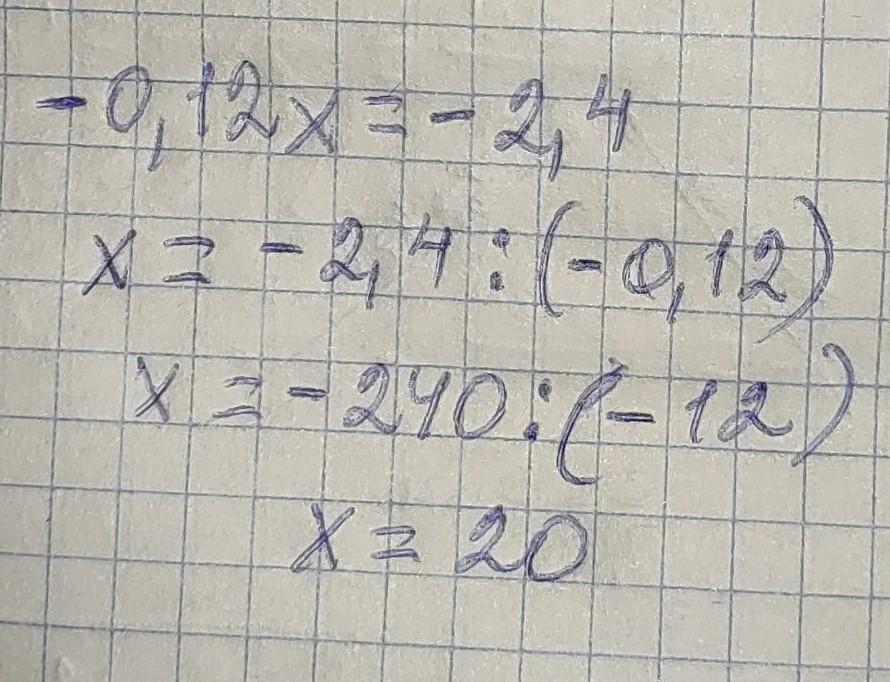 -0,12x=-2,4
x=-2,4:(-0,12)
x=-240:(-12)
x=20